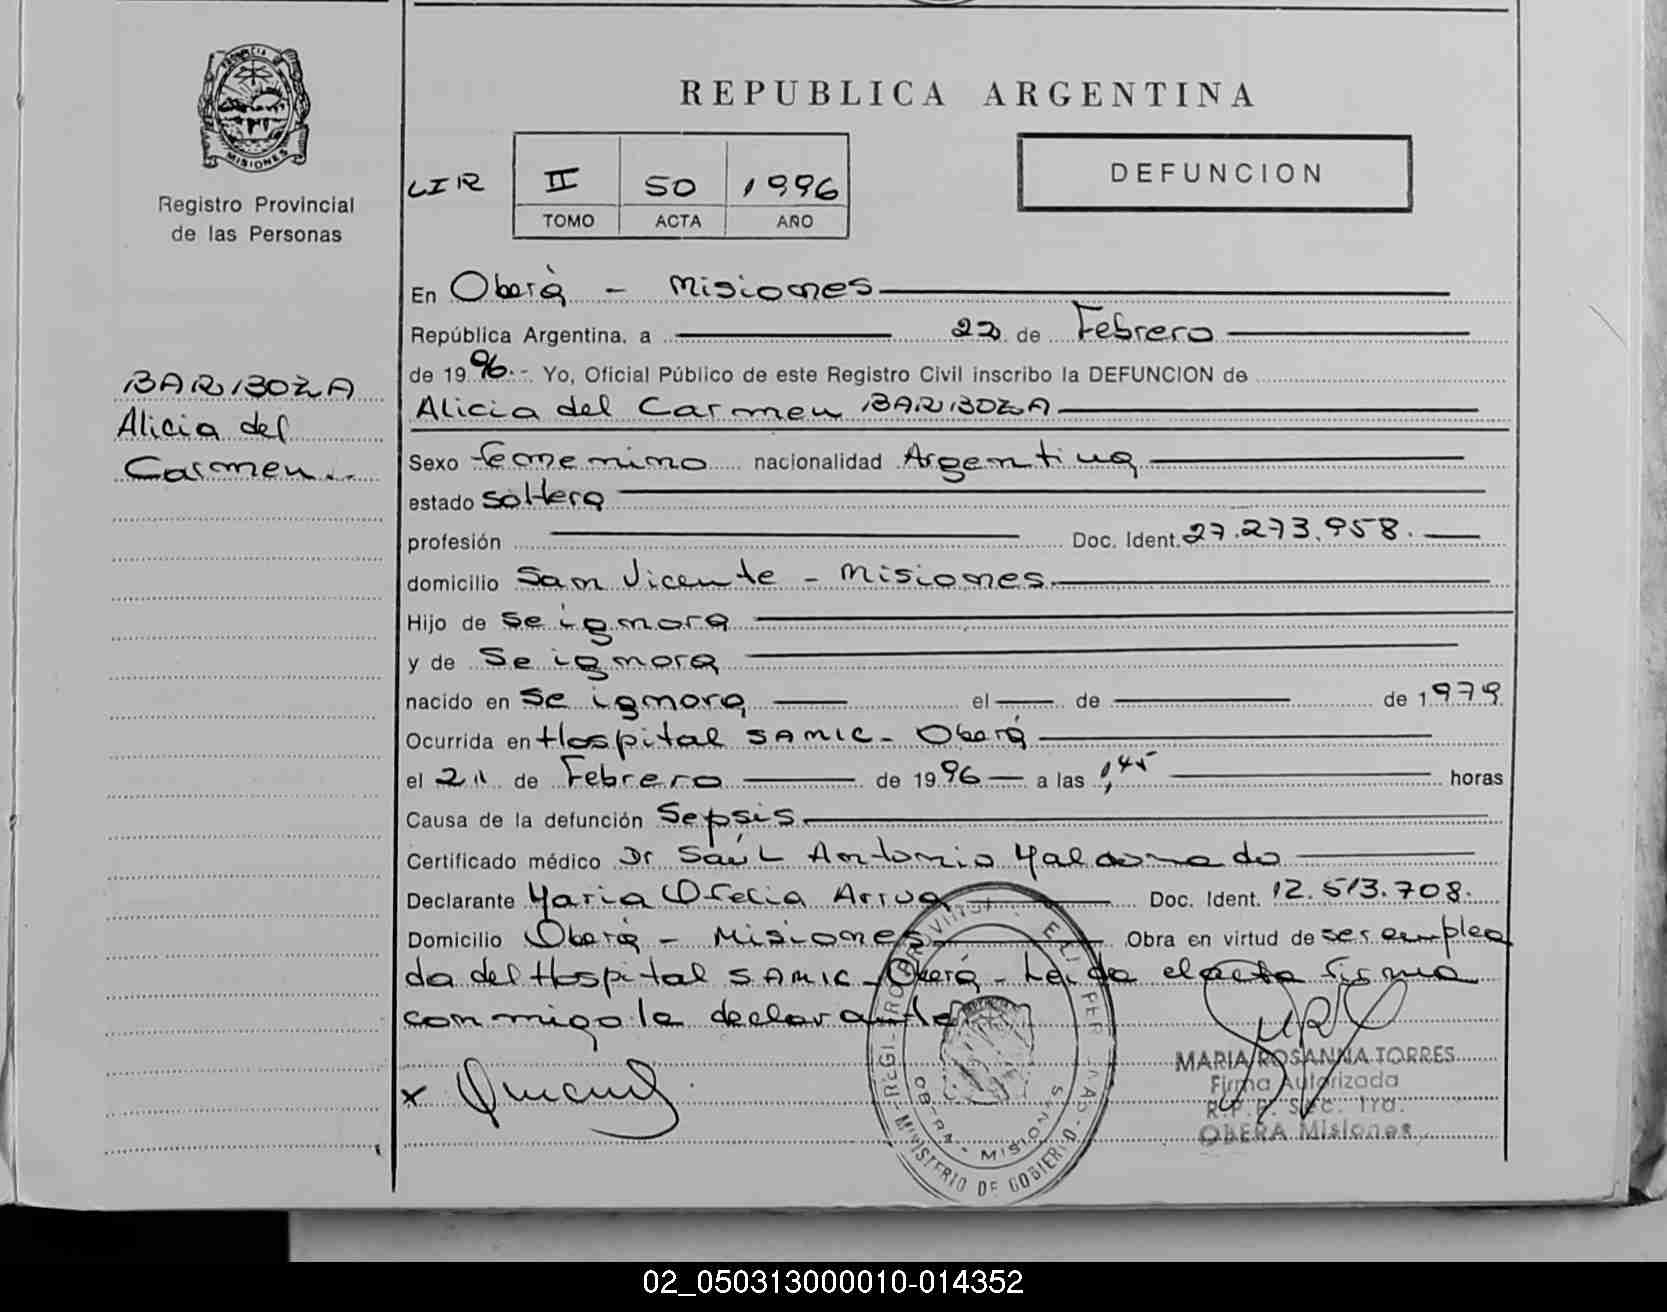 PROVINCIA DE
MISIONES
Registro Provincial
de las Personas
REPUBLICA ARGENTINA
DEFUNCION
LIR II 50 1996
TOMO ACTA AÑO
BARBOZA
Alicia del
Carmen..
En Oberà - Misiones
República Argentina, a 22 de Febrero
de 1996.- Yo, Oficial Público de este Registro Civil inscribo la DEFUNCION de
Alicia del Carmen BARBOZA
Sexo femenino nacionalidad Argentina
estado soltera
profesión Doc. Ident. 27.273.958.
domicilio San Vicente - Misiones
Hijo de se ignora
y de Se ignora
nacido en se ignora el de de 1979
Ocurrida en Hospital SAMIC - Oberá
el 21 de Febrero de 1996 a las 1,45 horas
Causa de la defunción Sepsis
Certificado médico Dr Saúl Antonio Maldonado
Declarante Maria Ofelia Arrua Doc. Ident. 12.513.708.
Domicilio Oberá - Misiones Obra en virtud de ser emplea
da del Hospital SAMIC - Oberá - Leida el acta firma
conmigo la declarante
x
MARIA ROSANNA TORRES
Firma Autorizada
R.P.P. Sec. 1ra.
OBERA Misiones
OBERA - MISIONES
MINISTERIO DE GOBIERNO
02_050313000010-014352